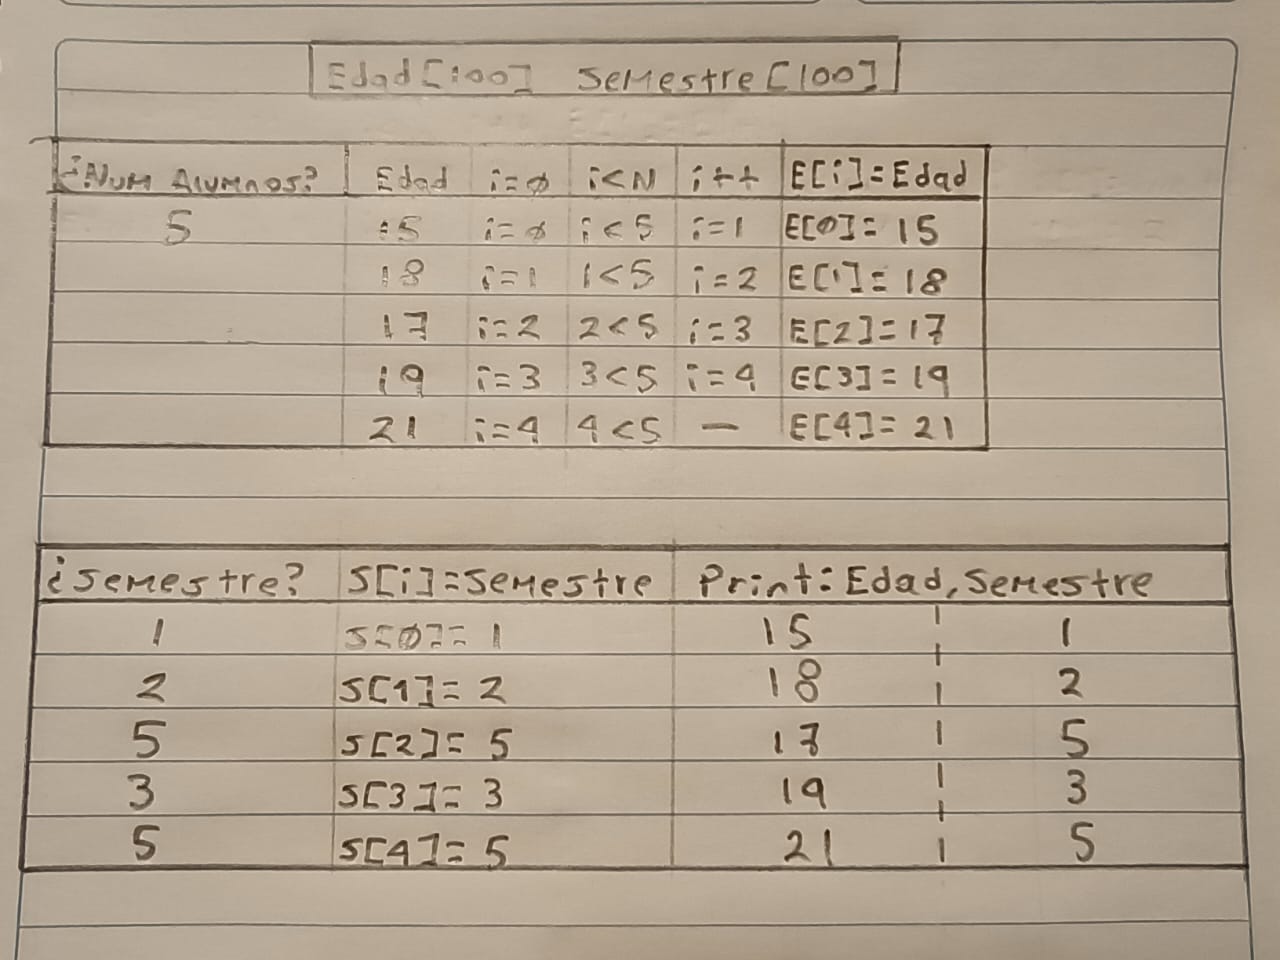 Edad[100] Semestre[100]
¿Num Alumnos? Edad i=0 i<N i++ E[i]=Edad
5 15 i=0 i<5 i=1 E[0]=15
18 i=1 1<5 i=2 E[1]=18
17 i=2 2<5 i=3 E[2]=17
19 i=3 3<5 i=4 E[3]=19
21 i=4 4<5 — E[4]=21
¿Semestre? S[i]=Semestre Print: Edad, Semestre
1 S[0]=1 15 | 1
2 S[1]=2 18 | 2
5 S[2]=5 17 | 5
3 S[3]=3 19 | 3
5 S[4]=5 21 | 5